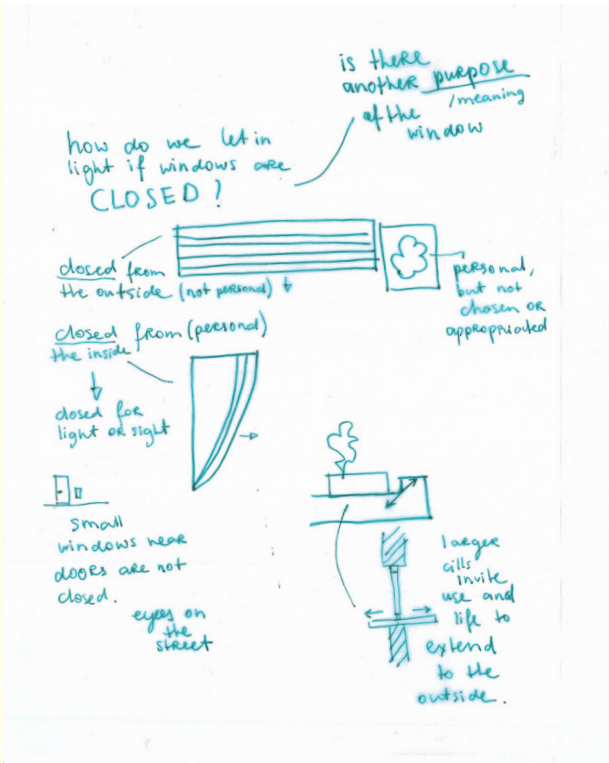 is there
another purpose
/meaning
of the
window
how do we let in
light if windows are
CLOSED?
closed from
the outside (not personal)
personal,
but not
chosen or
appropriated
closed from (personal)
the inside
closed for
light or sight
small
windows near
doors are not
closed.
eyes on
the
street
larger
cills
invite
use and
life to
extend
to the
outside.